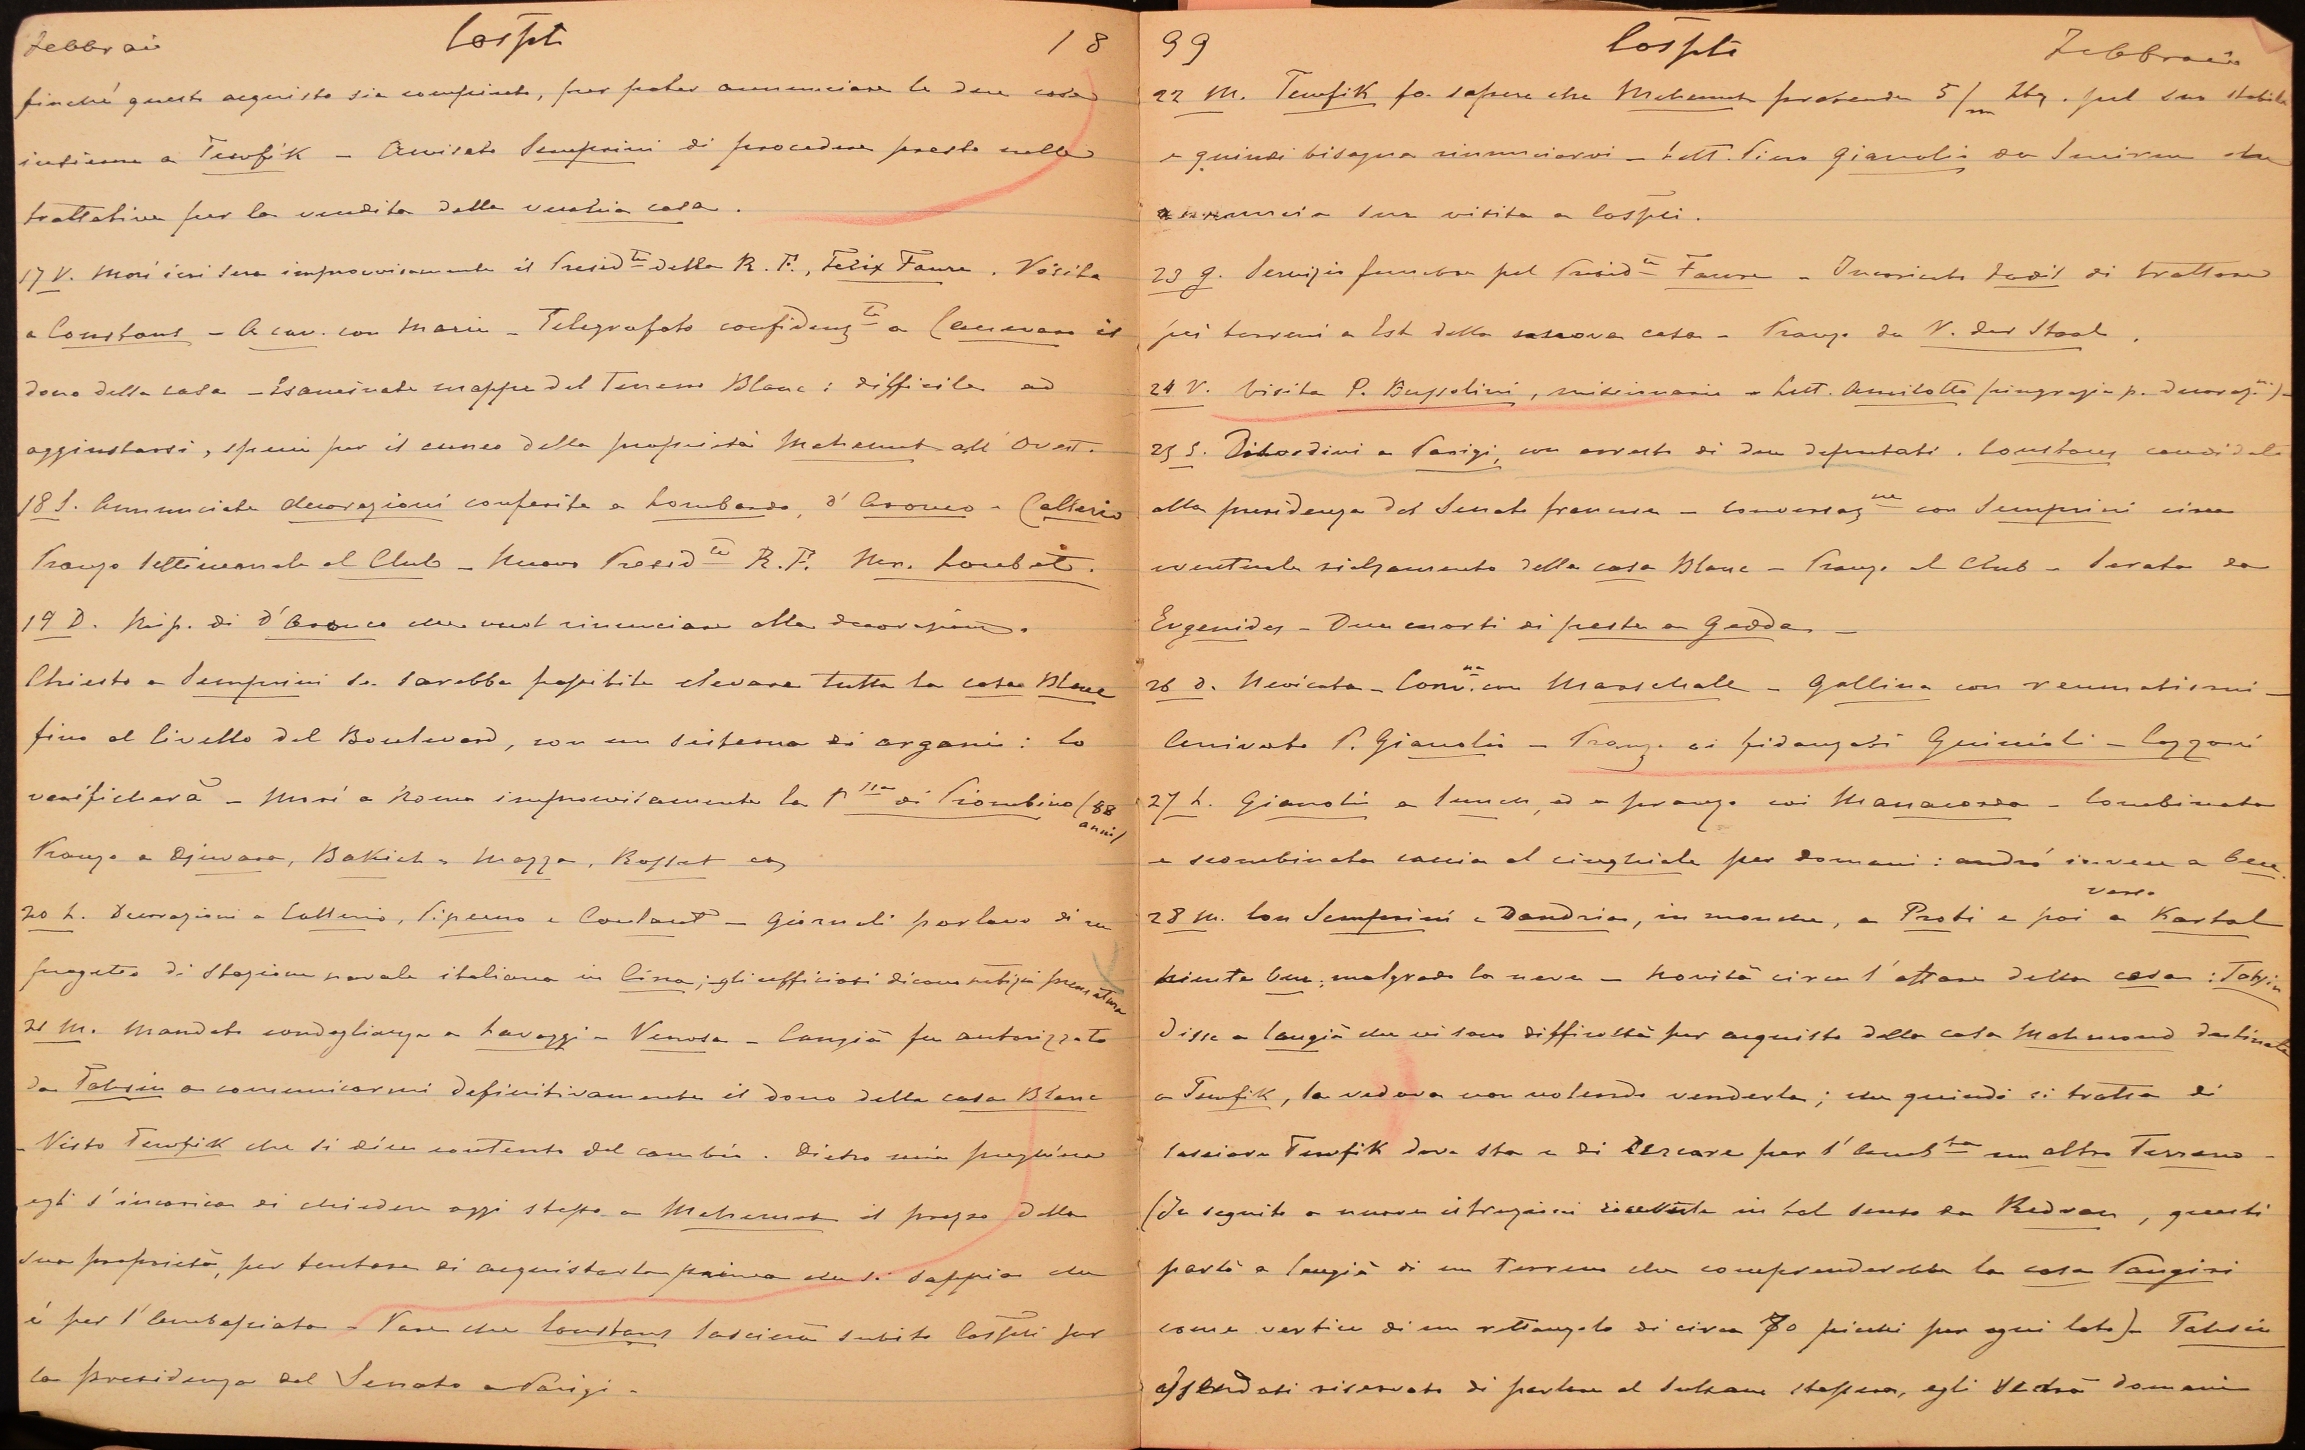 Febbraio Cospli 18
finché questo acquisto sia compiuto, per poter annunciare le due cose
insieme a Tewfik – Avvisato Semprini di procedere presto nelle
trattative per la vendita della vecchia casa.
17 V. Morì ieri sera improvvisamente il Presid.te della R. F., Felix Faure. Visita
a Constans – A cav. con Marie – Telegrafato confidenz.te a Canevaro il
dono della casa – Esaminate mappe del Terreno Blanc: difficile ad
aggiustarsi, specie per il cuneo della proprietà Mehemet all'Ovest.
18 S. Annunciate decorazioni conferite a Lombardo, d'Aronco – Callerio
Pranzo settimanale al Club – Nuovo Presid.te R. F. Mr. Loubet.
19 D. Risp. di D'Aronco che vuol rinunciare alla decorazione.
Chiesto a Semprini se sarebbe possibile elevare tutta la casa Blanc
fino al livello del Boulevard, con un sistema di argani: lo
verificherà – Morì a Roma improvvisamente la P.ssa di Piombino (88 anni)
Pranzo a Djuvara, Bakich, Mazza, Rosset ecc
20 L. Decorazioni a Callerio, Piperno e Coulant – Giornali parlano di un
progetto di stazione navale italiana in Cina; gli ufficiosi dicono notizia prematura
21 M. Mandato condoglianze a Lavaggi – Venosa – Cangià fu autorizzato
da Tahsin a comunicarmi definitivamente il dono della casa Blanc
– Visto Tewfik che si dice contento del cambio. Dietro mia preghiera
egli s'incarica di chiedere oggi stesso a Mehemet il prezzo della
sua proprietà, per tentare di acquistarla prima che si sappia che
è per l'Ambasciata – Pare che Constans lascierà subito Cospli per
la presidenza del Senato a Parigi –
99 Cospli Febbraio
22 M. Tewfik fa sapere che Mehemet pretende 5/m Ltq. pel suo stabile
e quindi bisogna rinunciarvi – Lett. Piero Gianolio da Smirne che
annuncia sua visita a Cospli.
23 G. Servizio funebre pel Presid.te Faure – Incaricato Fadil di trattare
pei terreni a Est della nuova casa – Pranzo da V. der Staal.
24 V. Visita P. Bussolini, missionario – Lett. Amilotto (ringrazia p. decoraz.ni) –
25 S. Disordini a Parigi, con arresto di due deputati. Constans candidato
alla presidenza del Senato francese – Conversaz.ne con Semprini circa
eventuale rialzamento della casa Blanc – Pranzo al Club – Serata da
Eugenides – Due morti di peste a Gedda –
26 D. Nevicata – Conv.ne con Marschall – Gallina con reumatismi –
Arrivato P. Gianolio – Pranzo ai fidanzati Guimioli – Cozzoni
27 L. Gianolio a lunch, ed a pranzo coi Manacorda – Combinata
e scombinata caccia al cinghiale per domani: andrò invece a becc.
28 M. Con Semprini e Dandria, in mouche, a Proti e poi verso a Kartal
niente becc. malgrado la neve – Novità circa l'affare della casa: Tahsin
disse a Cangià che vi sono difficoltà per acquisto della casa Mahmoud destinata
a Tewfik, la vedova non volendo venderla; che quindi si tratta di
lasciare Tewfik dove sta e di cercare per l'Amb.ta un altro Terreno –
(In seguito a nuove istruzioni ricevute in tal senso da Redvan, questi
parlò a Cangià di un terreno che comprenderebbe la casa Pangiri
come vertice di un rettangolo di circa 70 picchi per ogni lato) – Tahsin
essendosi riservato di parlare al Sultano stassera, egli vedrà domani